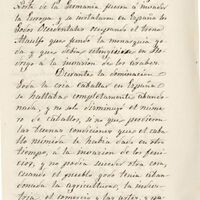 Norte de la Germania fueron á invadir
la Europa y se instalaron en España los
Godos Occidentales ocupando el trono
Ataulfo que fundó la monarquía go-
da y que debia extinguirse en Ro-
drigo á la invasion de los árabes.
Durante la dominacion
Goda la cria caballar en España
se hallaba completamente abando-
nada, y no solo disminuyó el núme-
ro de caballos, si no que perdieron
las buenas condiciones que el caba-
llo númida le habia dado en otro
tiempo, á la invasion de los feni-
cios, y no podia suceder otra cosa
cuando el pueblo godo tenia aban-
donada la agricultura, la indus-
tria, el comercio y las artes, y aun